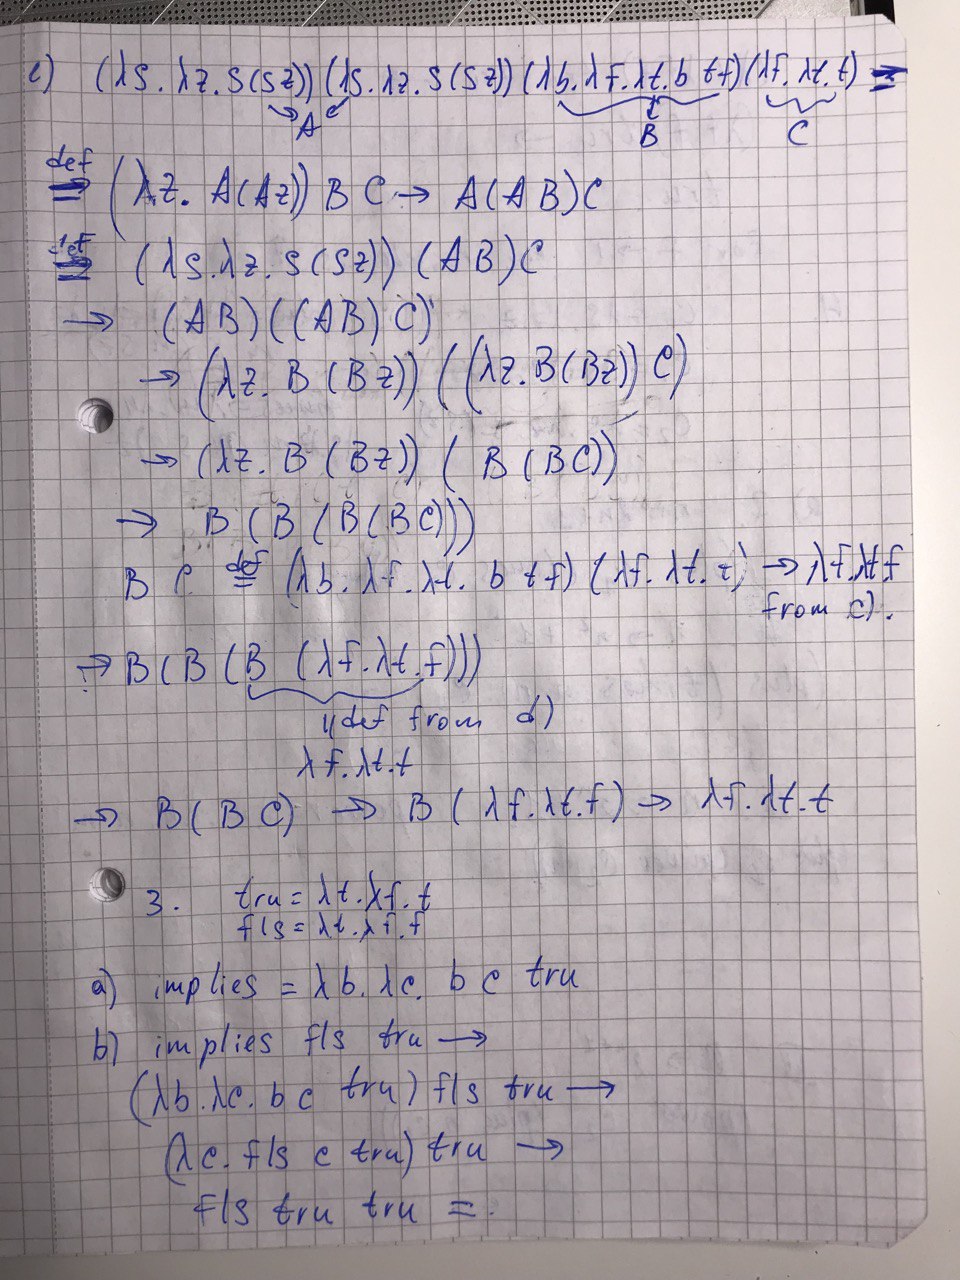 e) (λs.λz.s(sz))(λs.λz.s(sz))(λb.λf.λt.b t f)(λf.λt.t)
A B C
def
= (λz. A(Az)) B C → A(AB)C
(λs.λz.s(sz))(AB)C
→ (AB)((AB)C)
→ (λz. B(Bz))((λz.B(Bz))C)
→ (λz. B(Bz))(B(BC))
→ B(B(B(BC)))
B C def= (λb.λf.λt. b t f)(λf.λt.t) → λf.λt.f
from c).
→ B(B(B (λf.λt.f)))
def from d)
λf.λt.t
→ B(BC) → B(λf.λt.f) → λf.λt.t
3. tru = λt.λf.t
fls = λt.λf.f
a) implies = λb.λc. b c tru
b) implies fls tru →
(λb.λc. b c tru) fls tru →
(λc. fls c tru) tru →
fls tru tru =